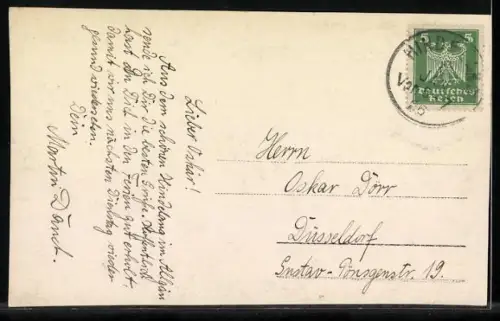 Lieber Oskar!
Aus dem schönen Hindelang im Allgäu
sende ich Dir die besten Grüße. Hoffentlich
hast Du Dich in den Ferien gut erholt,
damit wir uns nächsten Dienstag wieder
gesund wiedersehen.
Dein
Martin
Herrn
Oskar Dörr
Düsseldorf
Gustav-Pönsgenstr. 19.
5 5
Deutsches
Reich